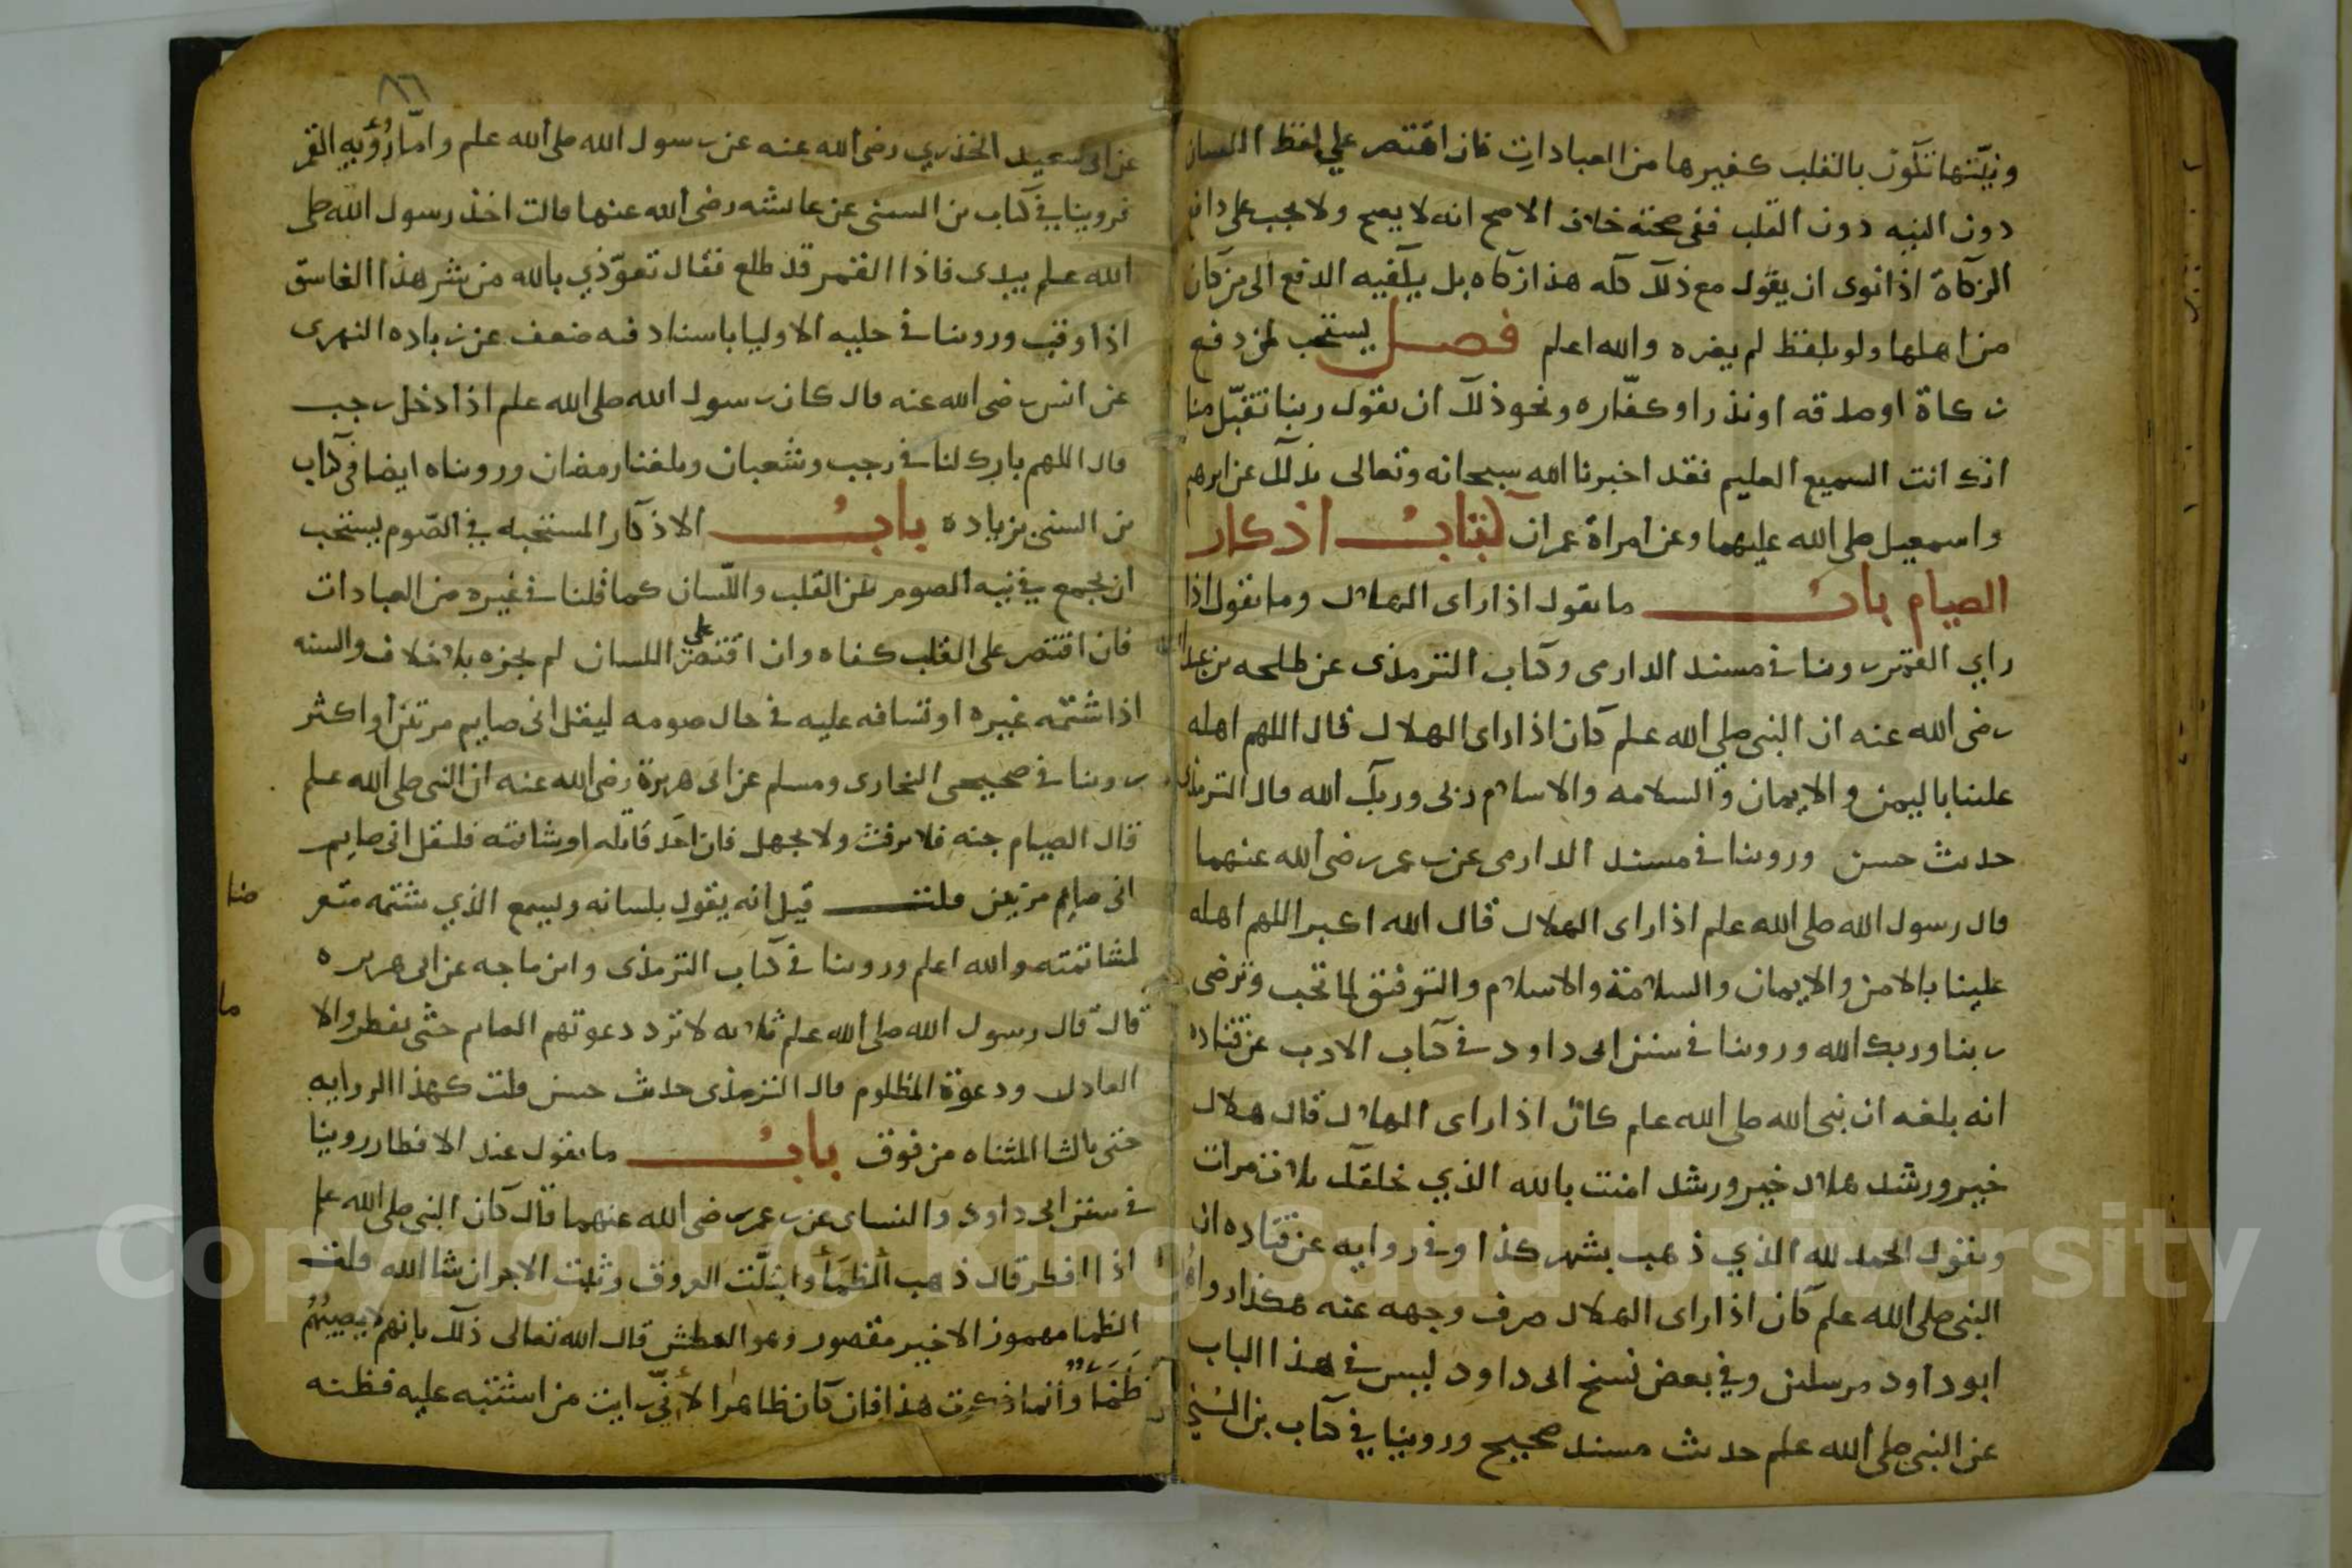 ونيّتها تكون بالقلب كغيرها من العبادات فان اقتصر علي لفظ اللسان
دون النيه دون القلب ففى صحته خلاف الاصح انه لا يصح ولا يجب على دافع
الزكاة اذا نوى ان يقول مع ذلك كله هذا زكاه بل يكفيه الدفع الى من كان
من اهلها ولو بلفظ لم يضره والله اعلم فصل يستحب لمن دفع
زكاة او صدقه او نذرا او كفّاره ونحو ذلك ان يقول ربنا تقبّل منا
انك انت السميع العليم فقد اخبرنا الله سبحانه وتعالى بذلك عن ابرهيم
واسمعيل صلى الله عليهما وعن امراة عمران كتاب اذكار
الصيام باب ما يقول اذا راى الهلال وما يقول اذا
راي القمر روينا في مسند الدارمى وكتاب الترمذى عن طلحه بن عبيد الله
رضى الله عنه ان النبى صلي الله علم كان اذا راى الهلال قال اللهم اهله
علينا باليمن والايمان والسلامه والاسلام ربى وربك الله قال الترمذى
حديث حسن وروينا في مسند الدارمى عن بن عمر رضى الله عنهما
قال رسول الله صلى الله علم اذا راى الهلال قال الله اكبر اللهم اهله
علينا بالامن والايمان والسلامة والاسلام والتوفيق لما تحب وترضى
ربنا وربك الله وروينا في سنن ابى داود في كتاب الادب عن قتاده
انه بلغه ان نبى الله صلى الله علم كان اذا راى الهلال قال هلال
خير ورشد هلال خير ورشد امنت بالله الذي خلقك ثلاث مرات
ويقول الحمد لله الذي ذهب بشهر كذا وفى روايه عن قتاده ان
النبى صلى الله علم كان اذا راى الهلال صرف وجهه عنه هكذا رواهما
ابو داود مرسلين وفي بعض نسخ ابى داود ليس في هذا الباب
عن النبى صلى الله علم حديث مسند صحيح وروينا في كتاب بن السني
٨٦
عن ابى سعيد الخذري رضى الله عنه عن رسول الله صلى الله علم وامّا رُؤيه القمر
فروينا في كتاب بن السنى عن عايشه رضى الله عنها قالت اخذ رسول الله صلى
الله علم بيدى فاذا القمر قد طلع فقال تعوّذي بالله من شر هذا الغاسق
اذا وقب وروينا في حليه الاوليا باسناد فيه ضعف عن زياده النميرى
عن انس رضى الله عنه قال كان رسول الله صلى الله علم اذا دخل رجب
قال اللهم بارك لنا في رجب وشعبان وبلغنا رمضان وروينا ايضا في كتاب
بن السنى بزياده باب الاذكار المستحبه في الصّوم يستحب
ان يجمع في نيه الصوم بين القلب واللّسان كما قلنا في غيره من العبادات
فان اقتصر على القلب كفاه وان اقتصر على اللسان لم يجزه بلا خلاف والسنه
اذا شتمه غيره او تسافه عليه في حال صومه ليقل انى صايم مرتين او اكثر
روينا في صحيحى البخارى ومسلم عن ابى هريرة رضى الله عنه ان النبى صلى الله علم
قال الصيام جنه فلا يرفث ولا يجهل فان احد قاتله او شاتمه فليقل انى صايم
انى صايم مرتين قلت قيل انه يقول بلسانه وليسمع الذي شتمه متعر
ضا
لمشاتمته والله اعلم وروينا في كتاب الترمذى وابن ماجه عن ابى هريره
قال قال رسول الله صلى الله علم ثلاثه لا ترد دعوتهم الصايم حتى يفطر والا
ما
العادل ودعوة المظلوم قال الترمذى حديث حسن قلت كهذا الروايه
حتى بالتا المثناه من فوق باب ما يقول عند الافطار روينا
في سنن ابى داود والنساى عن بن عمر رضى الله عنهما قال كان النبى صلى الله علم
اذا افطر قال ذهب الظمأ وابتلّت العروق وثبت الاجر ان شا الله قلت
الظما مهموز الاخير مقصور وهو العطش قال الله تعالى ذلك بانهم لا يصيبُهُمْ
ظَمَأٌ وانما ذكرت هذا فان كان ظاهرا لأنّي رايت من اشتبه عليه فظنه
Copyright © King Saud University